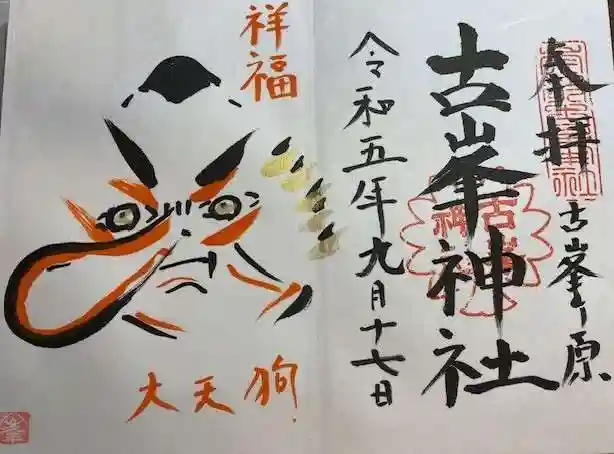 奉拝
古峯ヶ原
古峯神社
令和五年九月十七日
祥福
大天狗